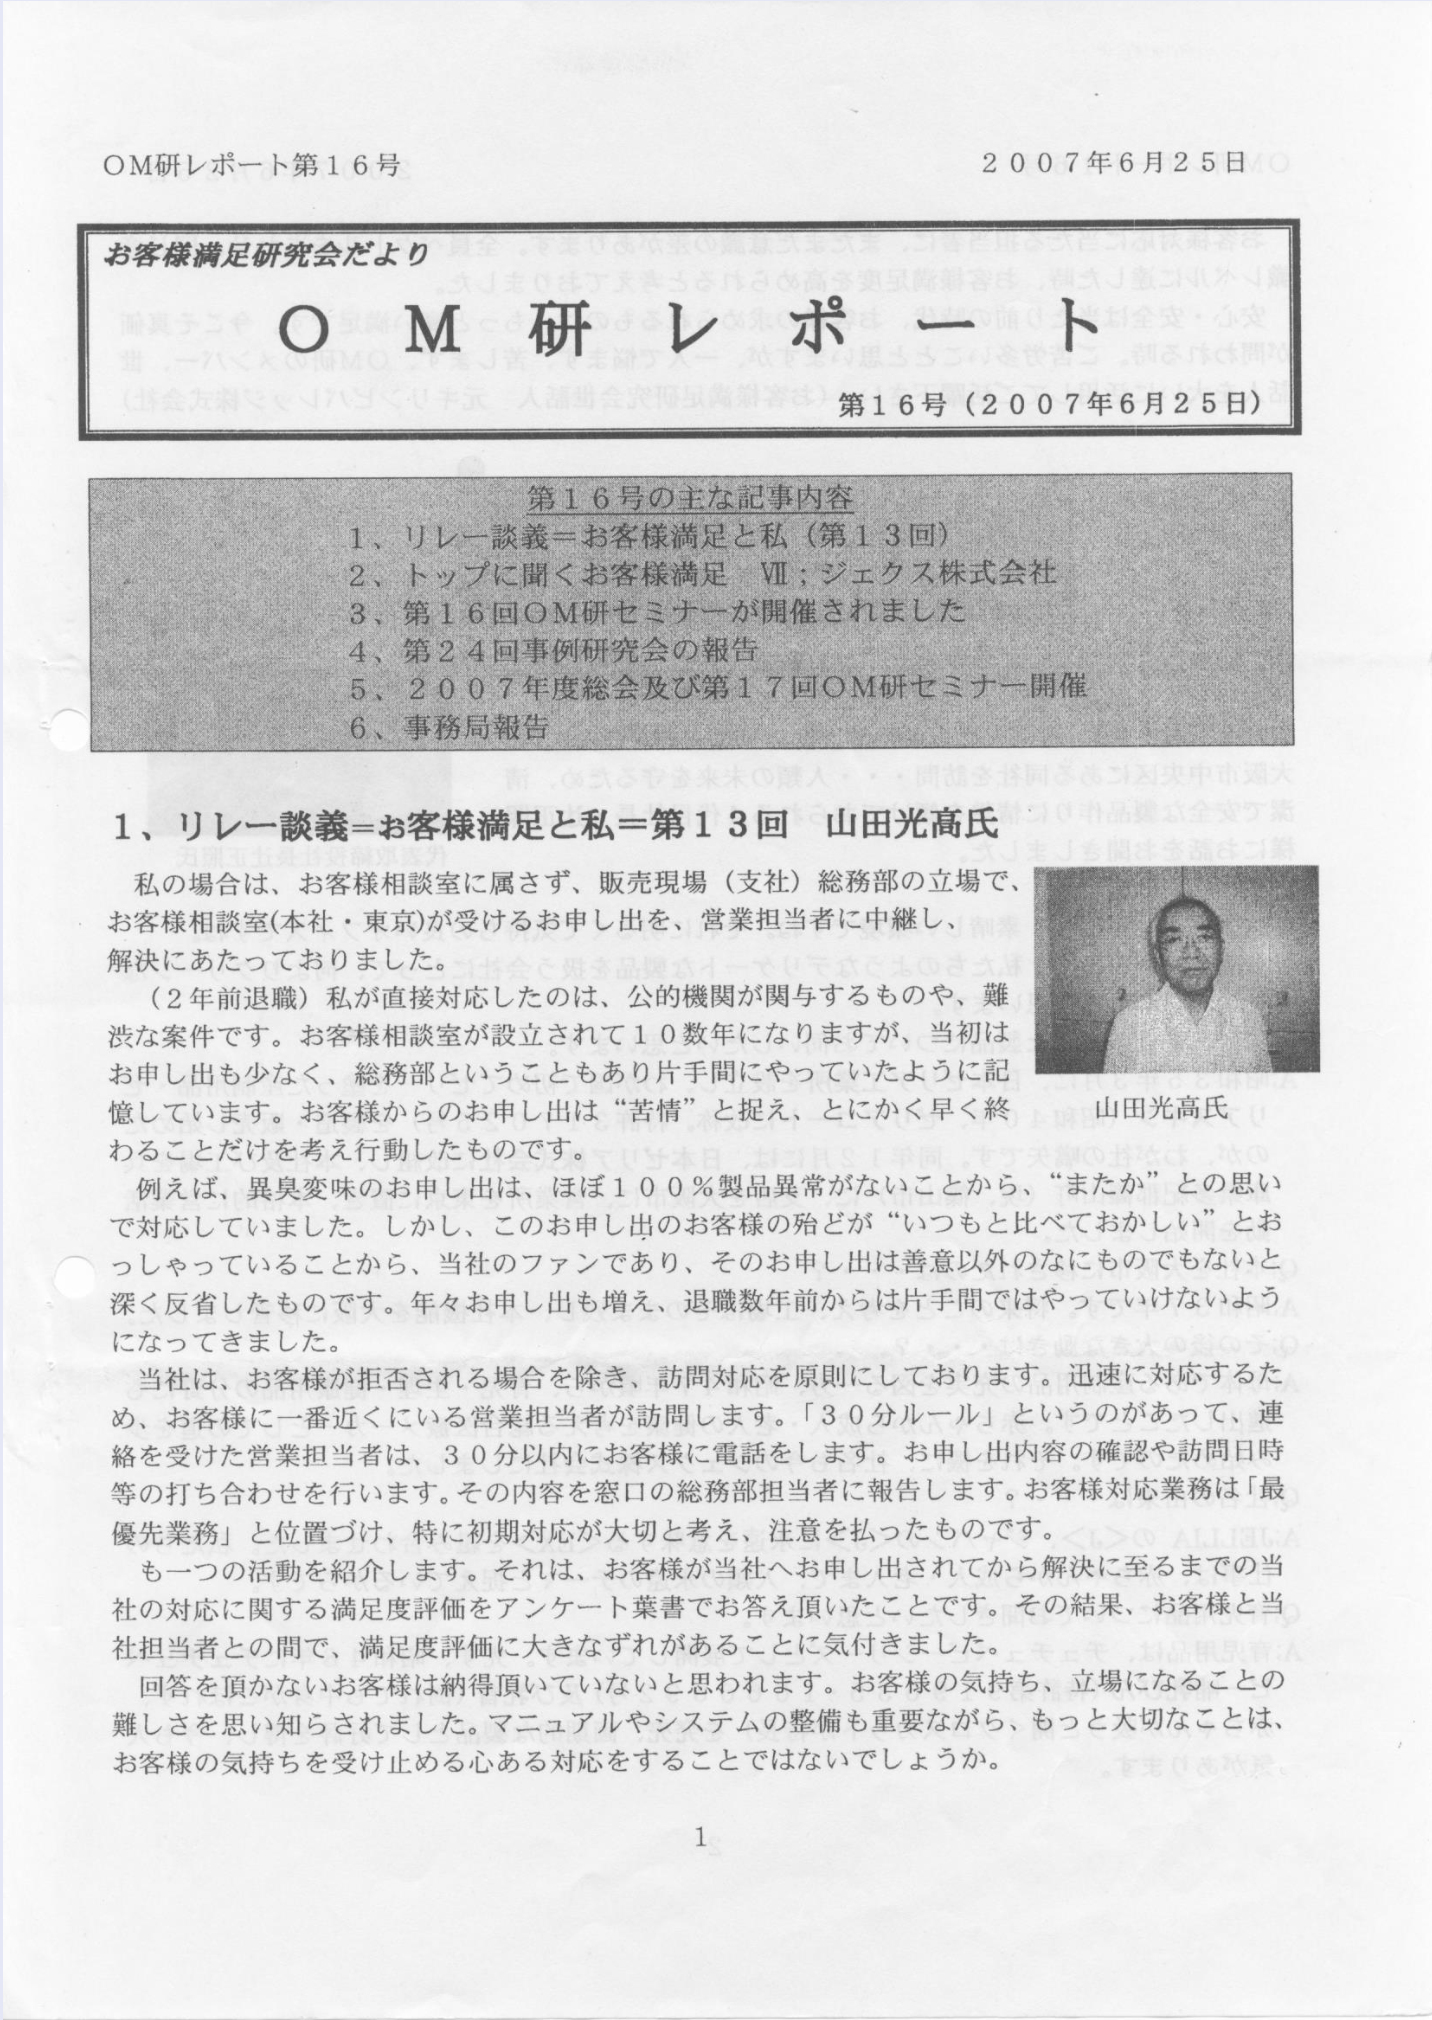 ＯＭ研レポート第１６号　２００７年６月２５日
お客様満足研究会だより
ＯＭ研レポート
第１６号（２００７年６月２５日）
第１６号の主な記事内容
１、リレー談義＝お客様満足と私（第１３回）
２、トップに聞くお客様満足　Ⅶ；ジェクス株式会社
３、第１６回ＯＭ研セミナーが開催されました
４、第２４回事例研究会の報告
５、２００７年度総会及び第１７回ＯＭ研セミナー開催
６、事務局報告
１、リレー談義＝お客様満足と私＝第１３回　山田光高氏
私の場合は、お客様相談室に属さず、販売現場（支社）総務部の立場で、
お客様相談室(本社・東京)が受けるお申し出を、営業担当者に中継し、
解決にあたっておりました。
（２年前退職）私が直接対応したのは、公的機関が関与するものや、難
渋な案件です。お客様相談室が設立されて１０数年になりますが、当初は
お申し出も少なく、総務部ということもあり片手間にやっていたように記
憶しています。お客様からのお申し出は“苦情”と捉え、とにかく早く終
わることだけを考え行動したものです。
山田光高氏
例えば、異臭変味のお申し出は、ほぼ１００％製品異常がないことから、“またか”との思い
で対応していました。しかし、このお申し出のお客様の殆どが“いつもと比べておかしい”とお
っしゃっていることから、当社のファンであり、そのお申し出は善意以外のなにものでもないと
深く反省したものです。年々お申し出も増え、退職数年前からは片手間ではやっていけないよう
になってきました。
当社は、お客様が拒否される場合を除き、訪問対応を原則にしております。迅速に対応するた
め、お客様に一番近くにいる営業担当者が訪問します。「３０分ルール」というのがあって、連
絡を受けた営業担当者は、３０分以内にお客様に電話をします。お申し出内容の確認や訪問日時
等の打ち合わせを行います。その内容を窓口の総務部担当者に報告します。お客様対応業務は「最
優先業務」と位置づけ、特に初期対応が大切と考え、注意を払ったものです。
も一つの活動を紹介します。それは、お客様が当社へお申し出されてから解決に至るまでの当
社の対応に関する満足度評価をアンケート葉書でお答え頂いたことです。その結果、お客様と当
社担当者との間で、満足度評価に大きなずれがあることに気付きました。
回答を頂かないお客様は納得頂いていないと思われます。お客様の気持ち、立場になることの
難しさを思い知らされました。マニュアルやシステムの整備も重要ながら、もっと大切なことは、
お客様の気持ちを受け止める心ある対応をすることではないでしょうか。
1